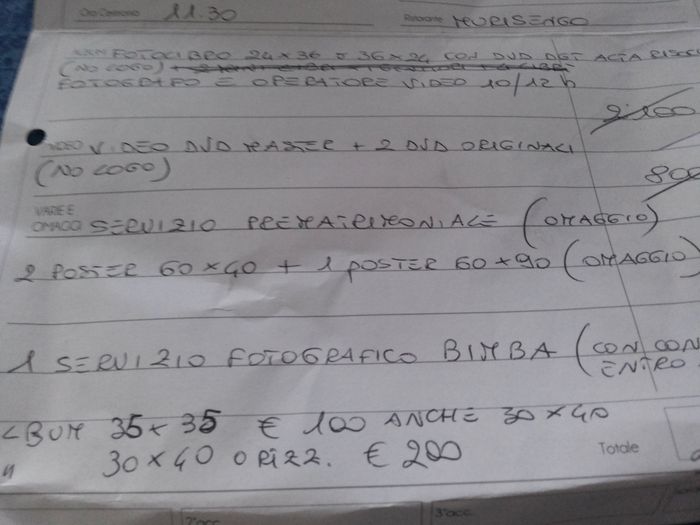 Ora Cerimonia 11.30 Ristorante MURISENGO
FOTOLIBRO 24x36 o 36x24 CON DVD DET ALTA RISOL
(NO LOGO)
FOTOGRAFO E OPERATORE VIDEO 10/12 h
2.100
VIDEO VIDEO DVD MASTER + 2 DVD ORIGINALI
(NO LOGO) 800
VARIE E
OMAGGI SERVIZIO PREMATRIMONIALE (OMAGGIO)
2 POSTER 60x40 + 1 POSTER 60x90 (OMAGGIO)
1 SERVIZIO FOTOGRAFICO BIMBA (CON CON
ENTRO
LBUM 35x35 € 100 ANCHE 30x40
" 30x40 ORIZZ. € 200 Totale
2°acc. 3°acc.